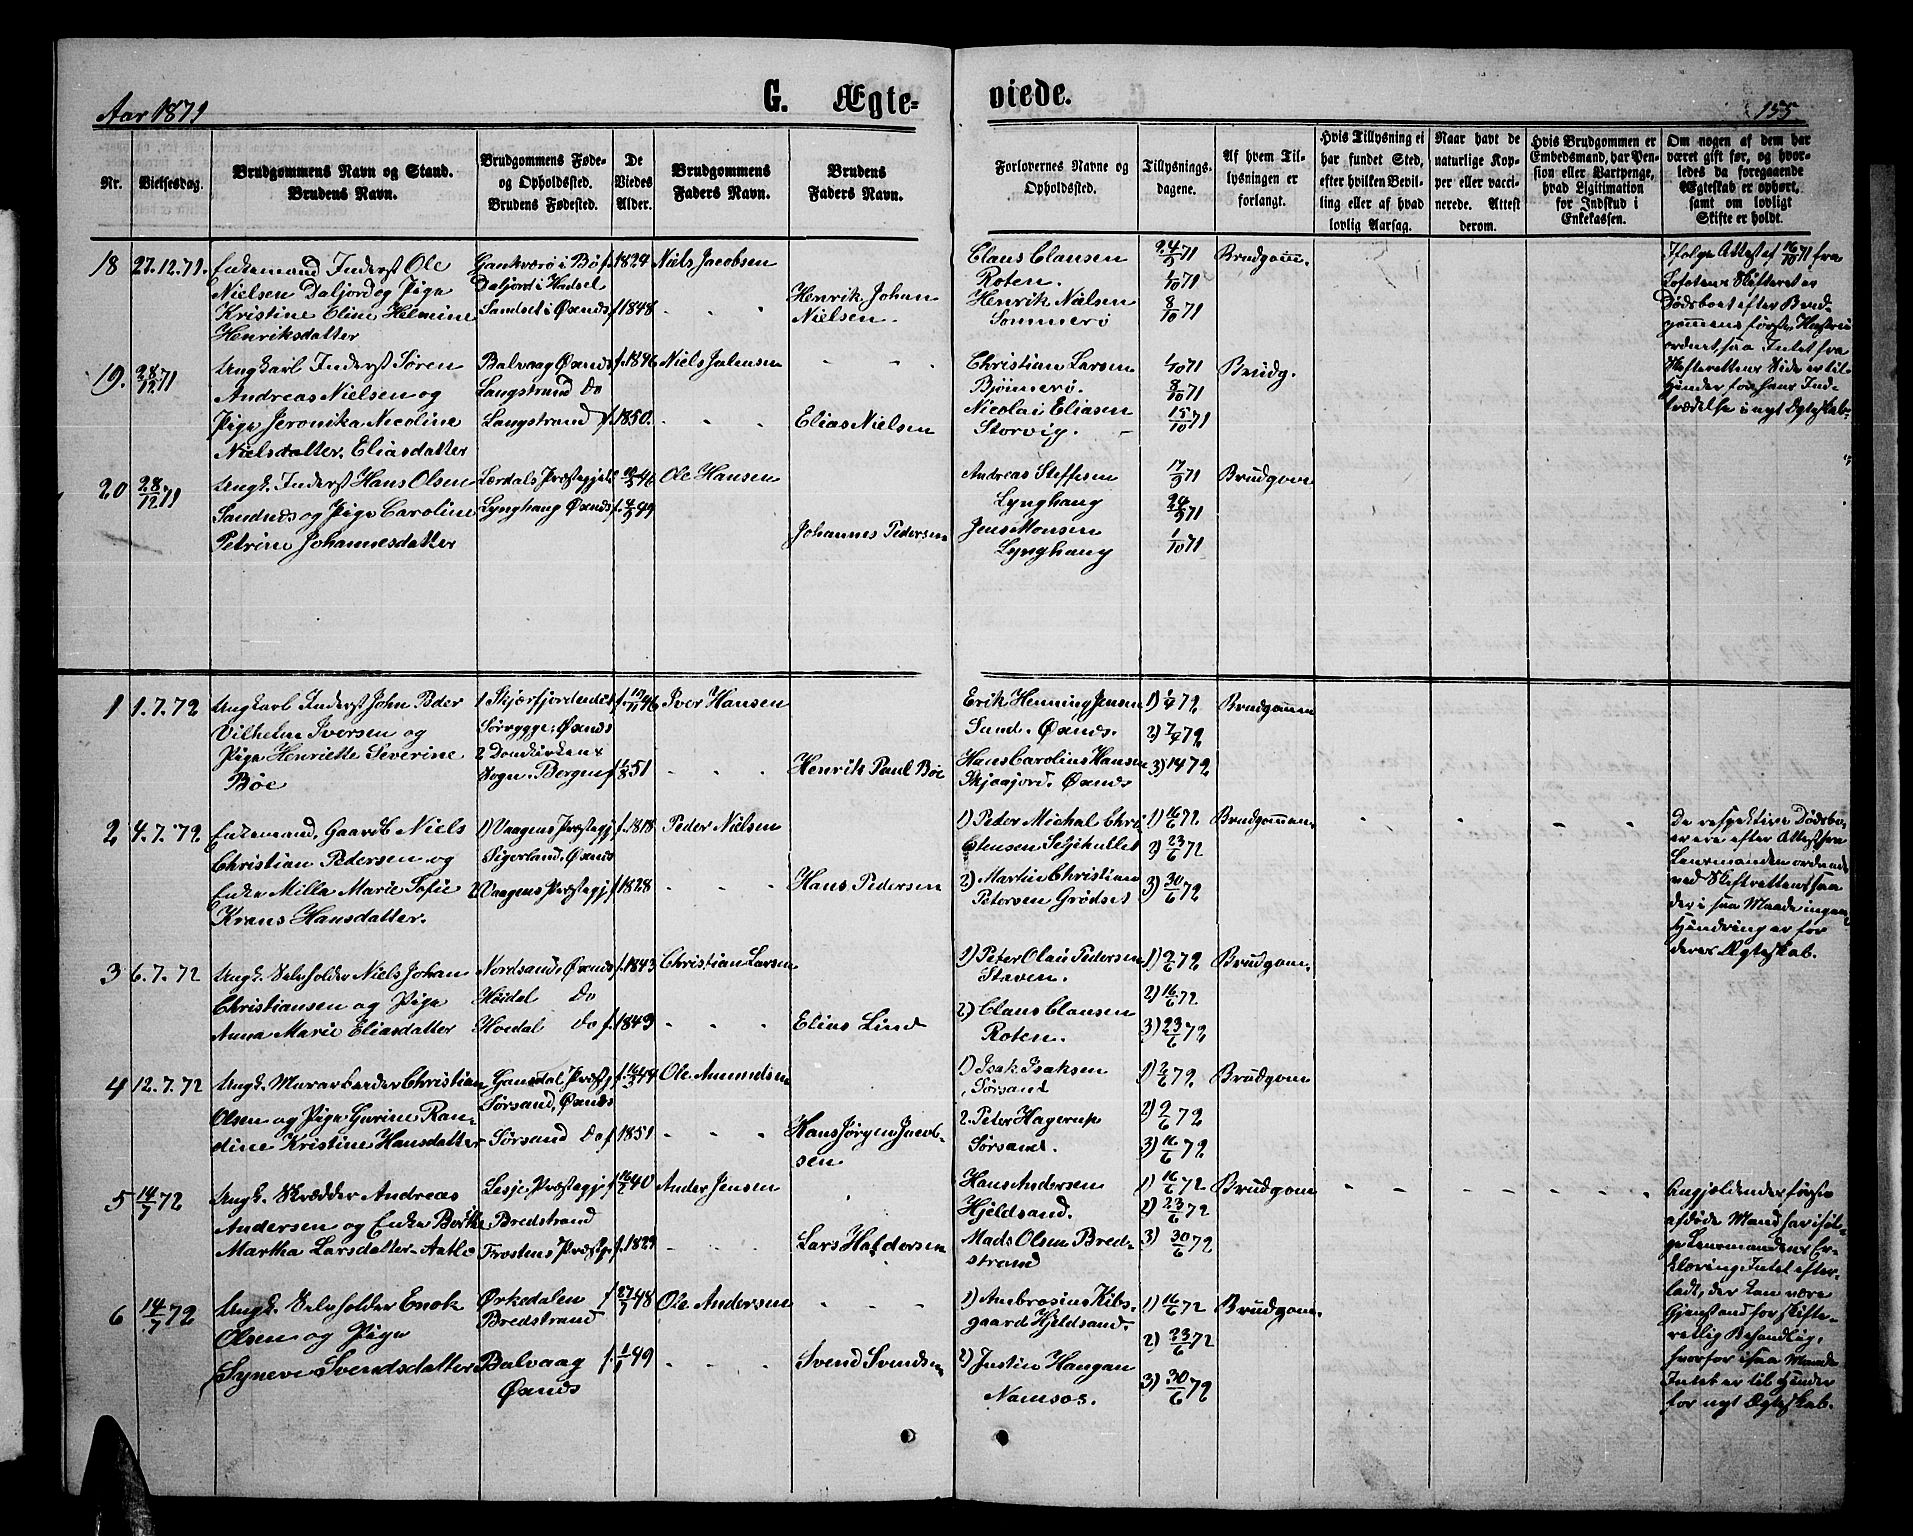 Aar 1871
G. Ægte-
viede.
155.
Nr.
Vielsesdag.
Brudgommens Navn og Stand.
Brudens Navn.
Brudgommens Føde-
og Opholdssted.
Brudens Fødested.
De
Viedes
Alder.
Brudgommens
Faders Navn.
Brudens
Faders Navn.
Forlovernes Navne og
Opholdssted.
Tillysnings-
dagene.
Af hvem Til-
lysningen er
forlangt.
Hvis Tillysning ei
har fundet Sted,
efter hvilken Bevil-
ling eller af hvad
lovlig Aarsag.
Naar havt de
naturlige Kop-
per eller vacci-
nerede. Attest
derom.
Hvis Brudgommen er
Embedsmand, har Pen-
sion eller Vartpenge,
hvad Ligitimation
for Indskud i
Enkekassen.
Om nogen af dem har
været gift før, og hvor-
ledes da foregaaende
Ægteskab er ophørt,
samt om lovligt
Skifte er holdt.
18 27.12.71.
Enkemand Inderst Ole
Nielsen Daljord og Pige
Kristine Eline Helmine
Henriksdatter
i Bø
Daljord i Hadsel
Sandset i Øxnds
f. 1824
f 1848
Niels Jacobsen
Henrik Johan
Nielsen.
Claus Clausen
Roten.
Henrik Nielsen
Sommerø
24/9 71
1/10 71
8/10 71
Brudgom.
Ifølge Attest af 16/10 71 fra
Lofotens Skifteret er
Dødsboet efter Brud-
gommens første Hustru
ordnet saa Intet fra
Skifterettens Side er til
Hinder for hans Ind-
trædelse i nyt Ægteskab.
19. 28/12 71
Ungkarl Inderst Søren
Andreas Nielsen og
Pige Jeronika Nicoline
Nielsdatter. Eliasdatter
Balvaag Øxnds
Langstrand do
Langstrand
f. 1846
f. 1850.
Niels Johnsen
Elias Nielsen
Christian Larsen
Bjørnerø.
Nicolai Eliasen
Storvig.
1/10 71
8/10 71
15/10 71
Brudg.
20 28/12 71
Ungk. Inderst Hans Olsen
Sandnes og Pige Caroline
Petrine Johannesdatter
Lærdals Præstegjeld
Lynghaug Øxnds
Ole Hansen
Johannes Pedersen
Andreas Steffesen
Lynghaug
Jens Monsen
Lynghaug
17/9 71
24/9 71
1/10 71
Brudgom
1 1.7.72
Ungkarl Inderst John Peder
Vilhelm Iversen og
Pige Henriette Severine
Bøe
1 Skjærfjorden
Øxnds
2 Domkirkens
Sogn. Bergen
Iver Hansen
Henrik Paul Bøe
Erik Henning Jensen
Sund. Øxnds.
Hans Carolius Hansen
Skjaajord. Øxnds
1) 1/4 72
2) 7/4 72
3) 14 72
Brudgommen
2 4.7.72
Enkemand, Gaardb Niels
Christian Pedersen og
Enke Milla Marie Sofie
Krans Hansdatter.
1) Vaagens Præstegj
Sigerland. Øxnds
2 Vaagens Præstegj
f. 1818
f 1828
Peder Nielsen
Hans Pedersen
1) Peter Michal Chri
stensen
2) Martin Christian
Petersen Grødset
1) 16/6 72
2) 23/6 72
3) 30/6 72
Brudgommen
De respektive Dødsbo-
er ere efter Attest fra
Lensmanden ordnede
ved Skifteretten saa
der i saa Maade ingen
Hindring er for
deres Ægteskab.
3 6.7.72
Ungk. Selvholder Niels Johan
Christiansen og Pige
Anna Marie Eliasdatter
Nordsand. Øxnds
Høidal do
Hoidal do
f. 1843
f. 1843
Christian Larsen
Elias Lind
1) Peter Olai Pedersen
Staven.
2) Claus Clausen
Roten.
1) 2/6 72
2) 16/6 72
3) 23/6 72
Brudgom.
4 12.7.72
Ungk. Murarbeider Christian
Olsen og Pige Gurine Ran-
dine Kristine Hansdatter
Præstgj
Sørsand, Øxnds
Sørsand do
f 1851
Ole Amundsen
Hans Jørgen Jacob-
sen
1) Isak Isaksen
Sørsand
2. Peter Hagerup
Sørsand.
1) 2/6 72
2) 9/6 72
3) 16/6 72
Brudgom
5 14/7 72
Ungk. Skrædder Andreas
Andersen og Enke
Martha Larsdatter
Lesje Præstegj
Bredstrand
Frostens Præstgj
f. 1829
Ander Jensen
Lars Haldersen
Hans Andersen
Hjeldsand.
Mads Olsen Bred-
strand
1) 16/6 72
2) 23/6 72
3) 30/6 72
Brudgom
Angjældendes første
afdøde Mand har iføl-
ge Lensmandens Er-
klæring Intet efter-
ladt, der kan være
Gjenstand for skifte-
retlig Behandlig,
hvorfor i saa Maade
Intet er til Hinder
for nyt Ægteskab.
6 14/7 72
Ungk. Selvholder Enok
Olsen og Pige
Syneve Svendsdatter
Ørkedalen
Bredstrand
Balvaag
Øxnds
f 27/7 48
f. 1/6 49
Ole Andersen
Svend Svendsen
1) Ambrosius Kibs-
gaard Hjeldsand.
2) Justin Haugan
Namsos.
1) 16/6 72
2) 23/6 72
3) 30/6 72
Brudgom.